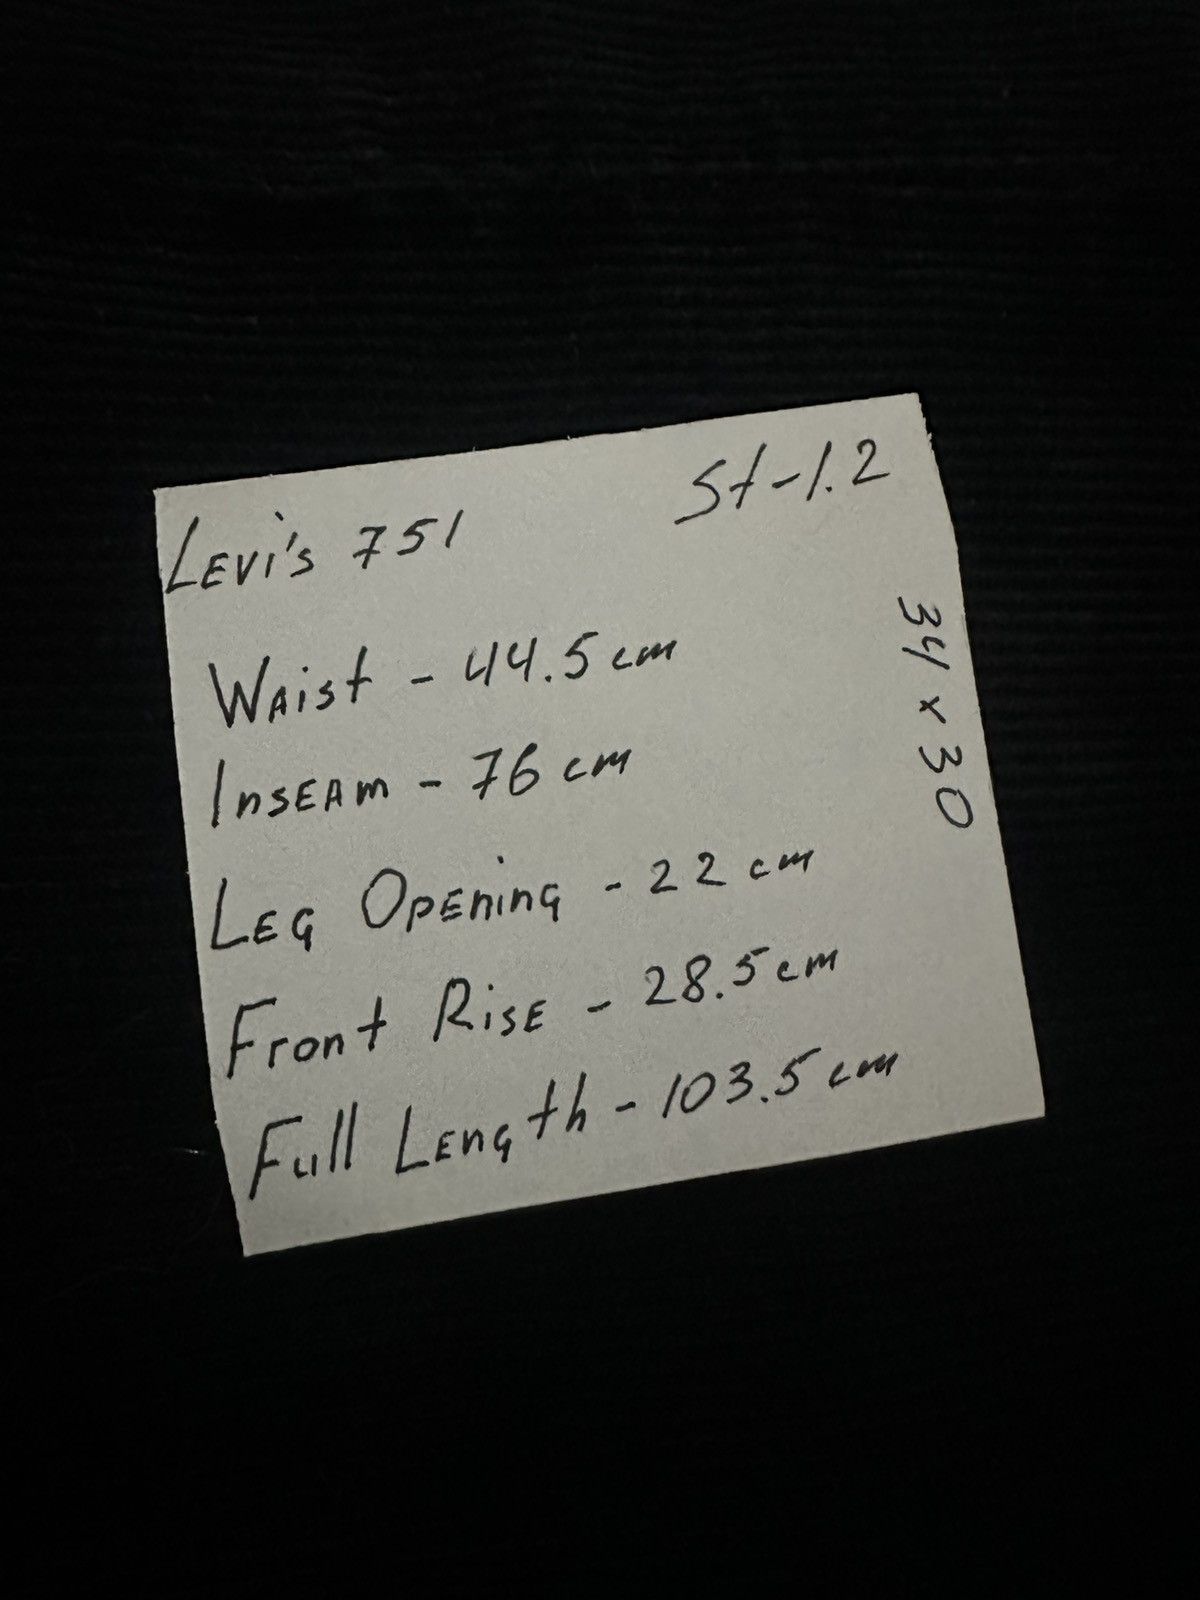 Levi's 751 St-1.2
Waist - 44.5 cm
Inseam - 76 cm
Leg Opening - 22 cm
Front Rise - 28.5 cm
Full Length - 103.5 cm
34 x 30